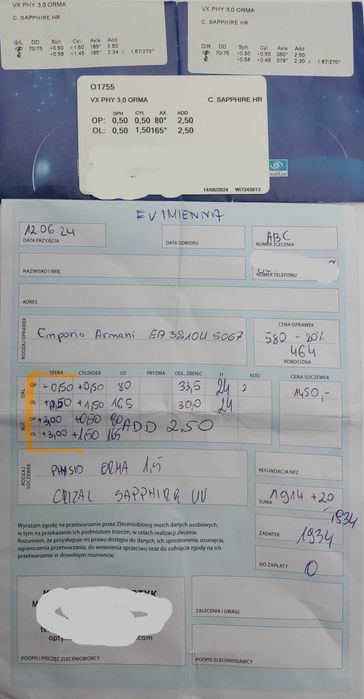 VX PHY 3,0 ORMA
C. SAPPHIRE HR
G/L DD Sph Cyl Axis Add
70/75 +0.50 +1.50 165° 2.50
+0.58 +1.45 165° 2.34 1.67/270°
VX PHY 3,0 ORMA
C. SAPPHIRE HR
D/R DD Sph Cyl Axis Add
70/75 +0.50 +0.50 080° 2.50
+0.58 +0.46 079° 2.30 1.67/270°
O1755
VX PHY 3,0 ORMA C. SAPPHIRE HR
SPH CYL AX ADD
OP: 0,50 0,50 80° 2,50
OL: 0,50 1,50 165° 2,50
14/08/2024 WI7245613
essilor
EVIMIENNA
12.06.24
DATA PRZYJĘCIA
DATA ODBIORU
ABC
NUMER ZLECENIA
NAZWISKO I IMIĘ
NUMER TELEFONU
ADRES
RODZAJ OPRAWEK
Emporio Armani EA 3210U 5067
CENA OPRAWEK
580 - 20%
464
ROBOCIZNA
SFERA CYLINDER OŚ PRYZMA ODL. ŹRENIC H ADD
DAL
OP +0,50 +0,50 80 33,5 24 2
OL +0,50 +1,50 165 30,0 24
BLIŻ
OP +3,00 +0,50 80 ADD 2.50
OL +3,00 +1,50 165
CENA SOCZEWEK
1450,-
RODZAJ SOCZEWEK
PHYSIO ORMA 1.5
CRIZAL SAPPHIRE UV
REFUNDACJA NFZ
SUMA
1914 +20
1934
ZADATEK
1934
DO ZAPŁATY
0
Wyrażam zgodę na przetwarzanie przez Zleceniobiorcę moich danych osobowych,
w tym na przekazanie ich podmiotom trzecim, w celach realizacji zlecenia.
Rozumiem, że przysługuje mi prawo dostępu do danych, ich sprostowania, usunięcia,
ograniczenia przetwarzania, do wniesienia sprzeciwu oraz do cofnięcia zgody na ich
przetwarzanie w dowolnym momencie.
ZALECENIA I UWAGI
PODPIS I PIECZĘĆ ZLECENIOBIORCY
PODPIS ZLECENIODAWCY